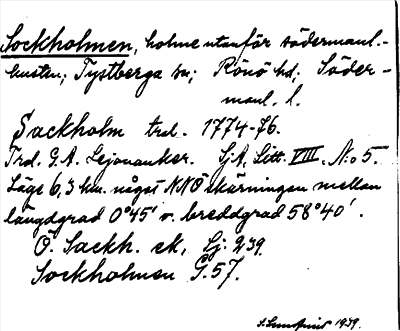 Sockholmen, holme utanför södermanl.-
kusten; Tystberga sn; Rönö hd; Söder-
manl. l.
Sackholm trol. 1774-76.
Trol. G.A. Lejonanker. SjA, Litt. VIII. No 5.
Läge 6,3 km. något NNÖ skärningen mellan
längdgrad 0°45' v. breddgrad 58°40'.
Ö. Sackh. ek, Sj: 239.
Sockholmen G.57.
1939.